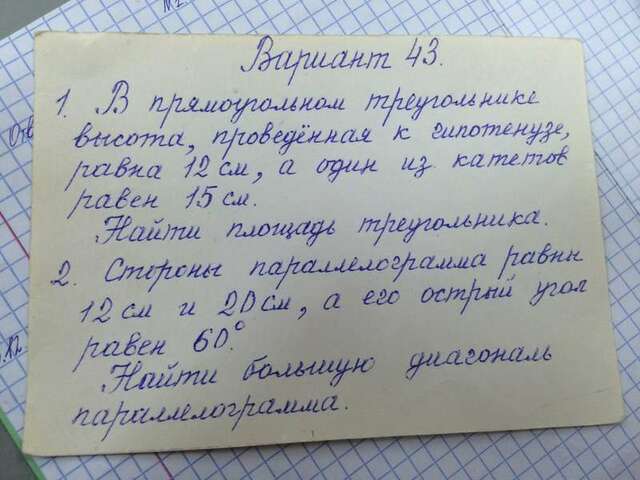 Вариант 43.
1. В прямоугольном треугольнике
высота, проведённая к гипотенузе,
равна 12 см, а один из катетов
равен 15 см.
Найти площадь треугольника.
2. Стороны параллелограмма равны
12 см и 20 см, а его острый угол
равен 60°.
Найти большую диагональ
параллелограмма.